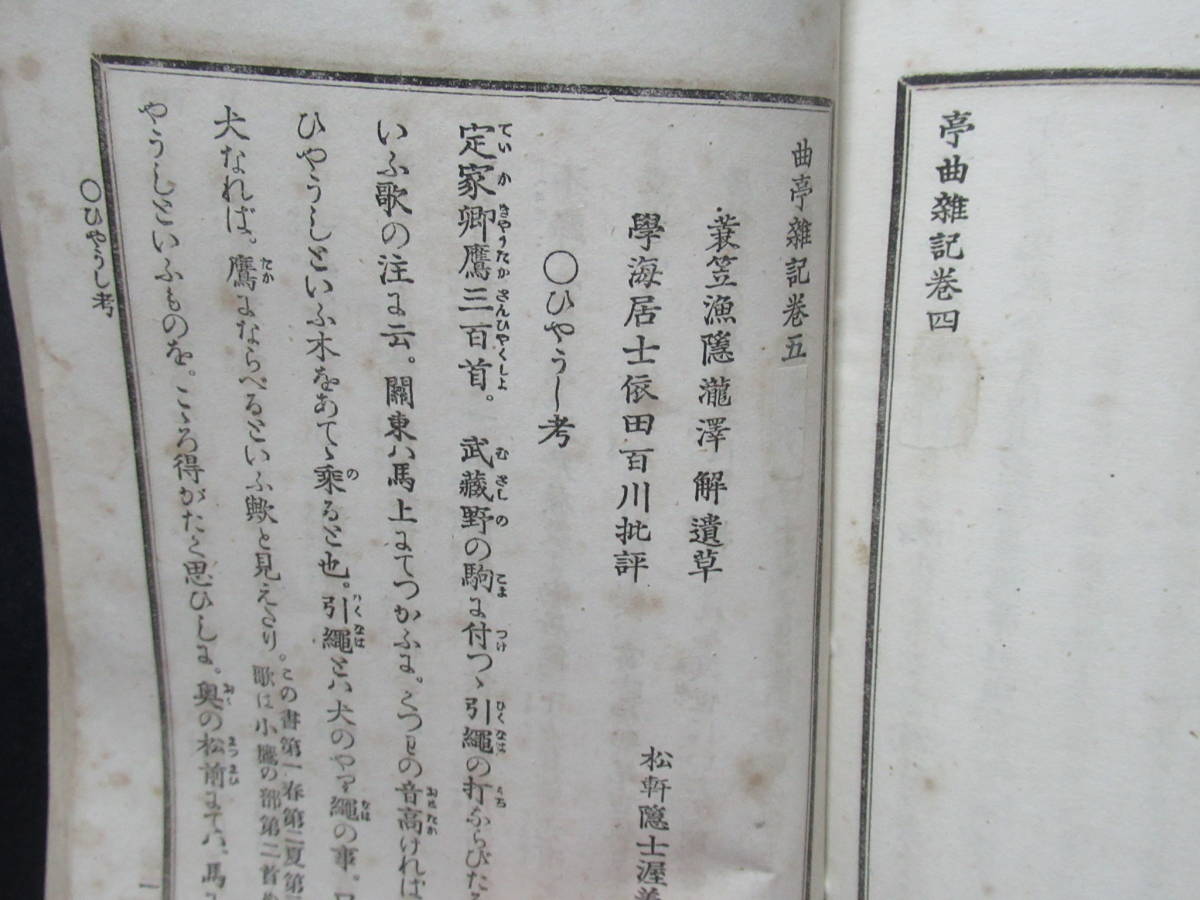 亭曲雜記卷四
曲亭雜記卷五
蓑笠漁隱瀧澤解遺草
學海居士依田百川批評
松軒隱士渥美
〇ひやうし考
定家卿鷹三百首。武藏野の駒に付つゝ引繩の打ならびたる
いふ歌の注に云。關東ハ馬上にてつかふに。くつわの音高ければ
ひやうしといふ木をあてゝ乘ると也。引繩とハ犬のやり繩の事。
犬なれば。鷹にならべるといふ歟と見えたり。
この書第一春第二夏第
歌は小鷹の部第二首め
やうしといふものを。こゝろ得がたく思ひしに。奥の松前にてハ、馬に
〇ひやうし考
一